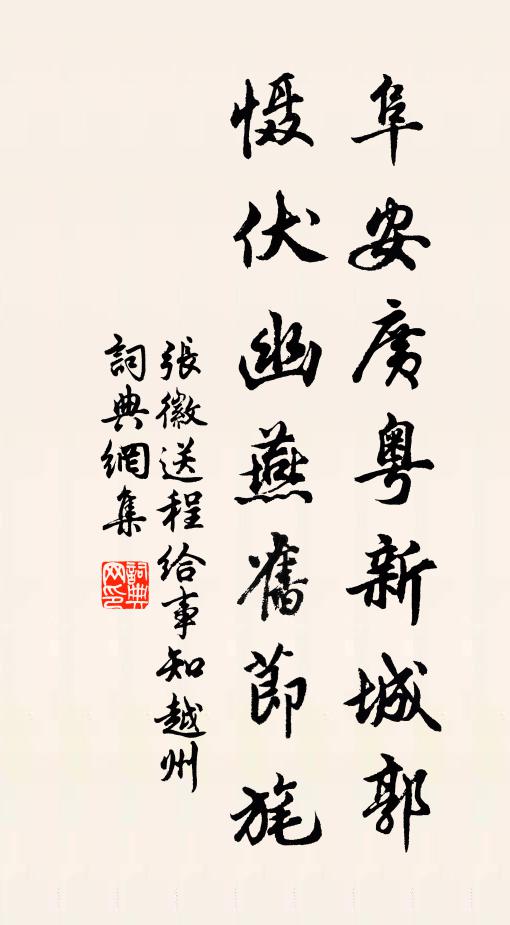 阜安廣粵新城郭
慑伏幽燕舊節旄
張徽送程給事知越州
詞典網集
詞典网印